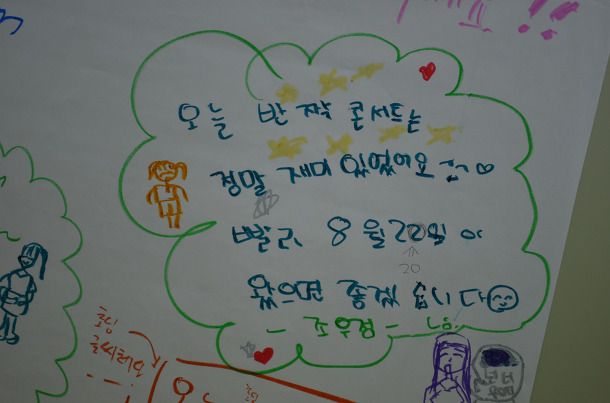 오늘 반짝 콘서트는
정말 재미 있었어요 ㅋㅋ ♡
빨리 8월 22일이
20
왔으면 좋겠습니다
- 조우정 -